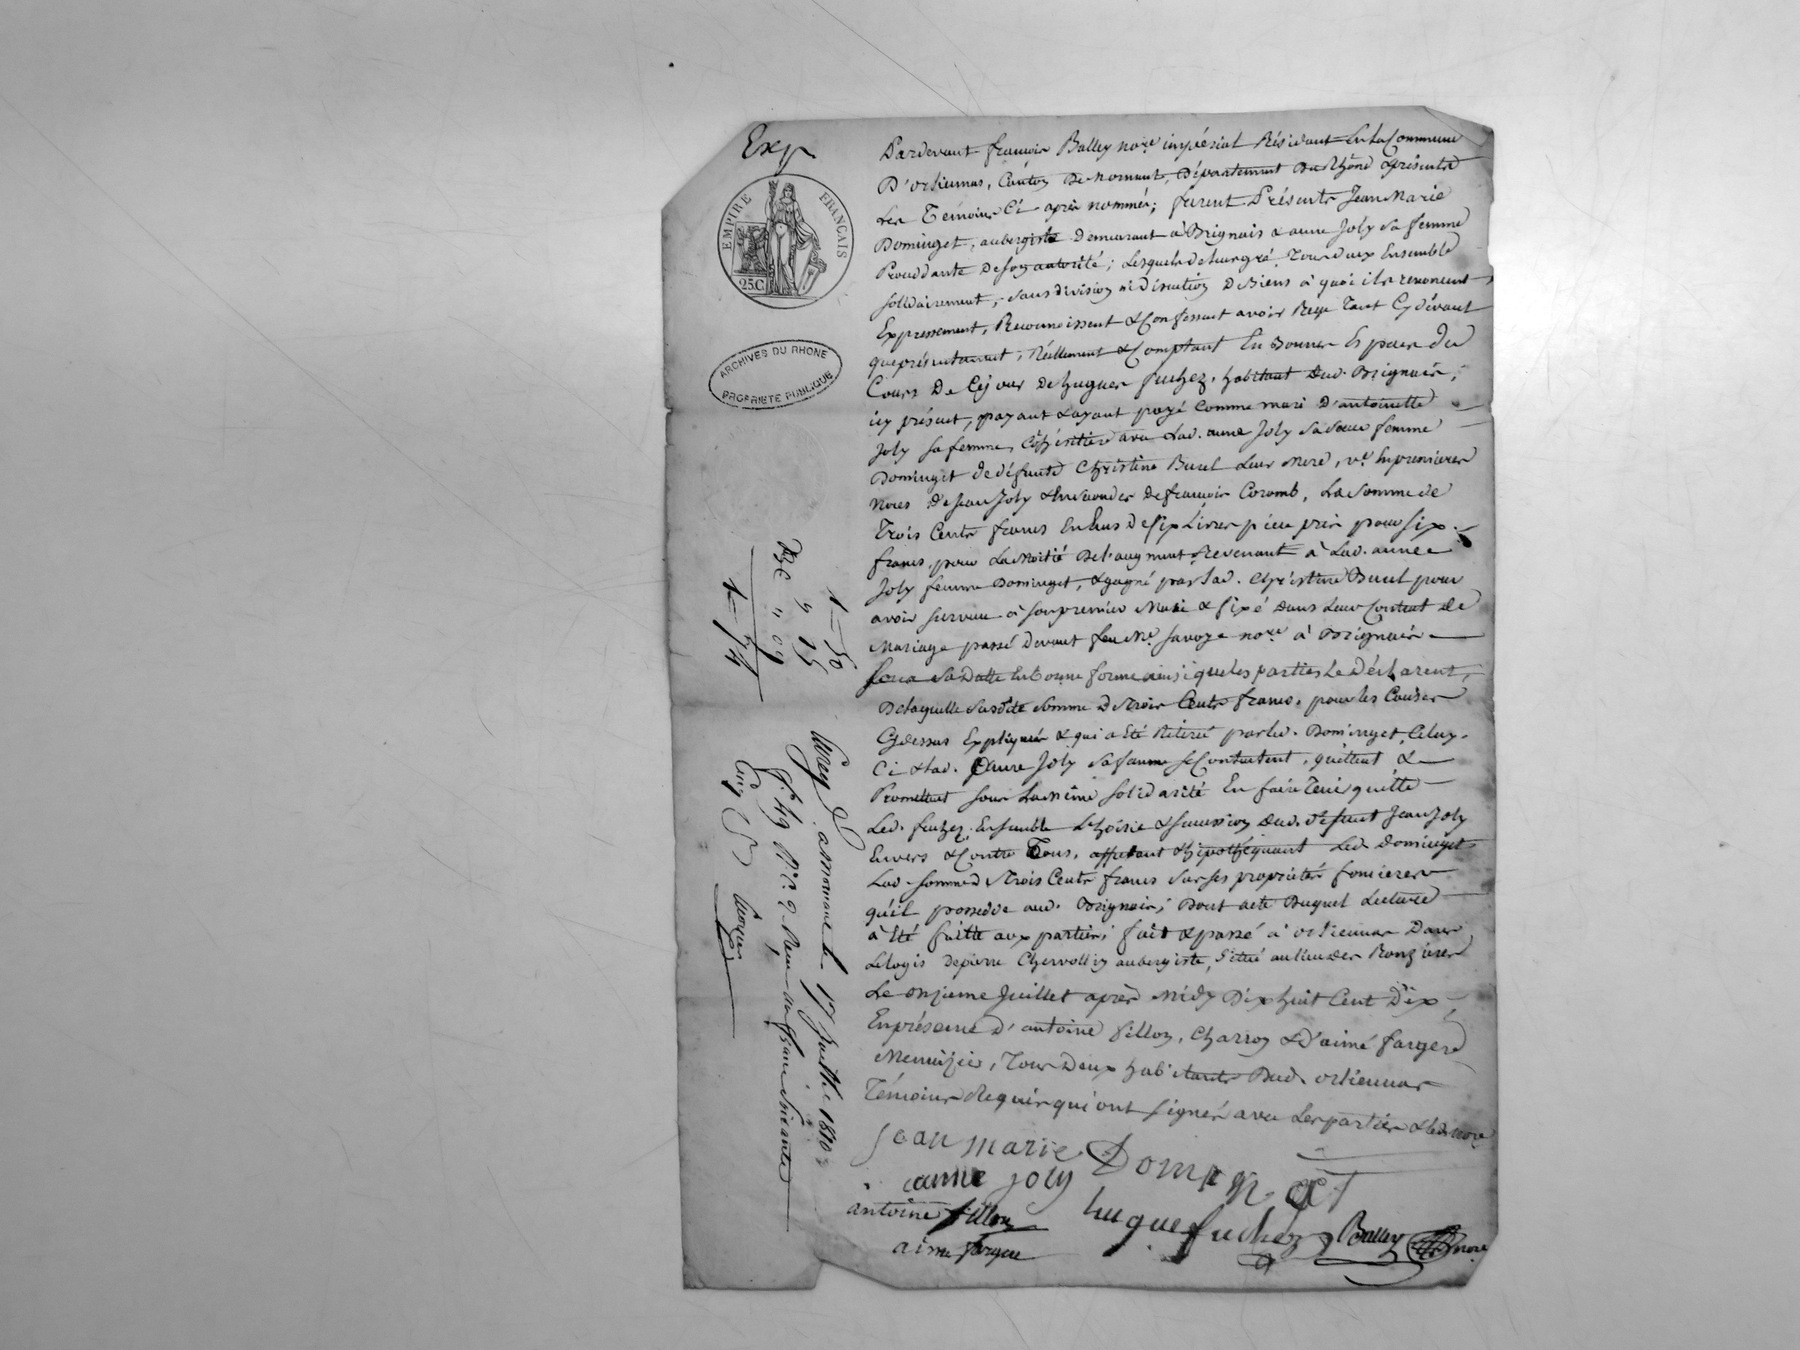 Exp
EMPIRE FRANÇAIS
25C
ARCHIVES DU RHONE
PROPRIETE PUBLIQUE
Pardevant françois Balley no.re impérial Résidant En la Commune
D'orliennas, Canton De Mornant, Département Du Rhône & présents
Les Temoins Ci après nommés; furent Présents Jean Marie
Dominget, aubergiste Demeurant à Brignais & anne Joly sa femme
Procedante De son autorité; Lesquels de leur gré Tous deux Ensemble
solidairement, sans division ni Discution De Biens à quoi ils renoncent
Expressement, Reconnoissent & Confessent avoir Reçu Tant Cy dévant
que présentement, Réellement & Comptant En Bonnes Espèces du
Cours De Ce jour de hugues fuchez, habitant dud. Brignais;
icy présent, payant & ayant payé Comme mari D'antoinette
Joly sa femme, Cohéritière avec Lad. anne Joly sa sœur femme
Dominget de défunte Christine Burel Leur Mere, v.e En premieres
Noces de Jean Joly & En secondes de françois Coromb, La Somme de
Trois Cents francs En Ecus de six Livres pièce pris pour six
francs, pour La Moitié De l'augment Revenant à Lad. anne
Joly femme Dominget, & gagné par lad. Christine Burel pour
avoir survecu à son premier Mari & fixé Dans Leur Contrat de
Mariage passé Devant feu M.e Savoye no.re à Brignais
sous sa Datte En bonne forme ainsi que les parties Le Déclarent,
De laquelle susdite somme De Trois Cents francs, pour les Causes
Cy dessus Expliquées & qui a Eté Retirée par led. Dominget, Celuy-
Ci & lad. Anne Joly sa femme se Contentent, quittent &
Promettent sous La même solidarité En faire Tenir quitte
Led. fuchez Ensemble L'hoirie & succession Dud. défunt Jean Joly
Envers & Contre Tous, affectant & hipothéquant Led. Dominget
Lad. somme De Trois Cents francs sur ses propriétés foncieres
qu'il possede aud. Brignais; Dont acte Duquel Lecture
à Eté faitte aux parties; fait & passé à orliennas Dans
Le logis de pierre Chervollin aubergiste, situé au lieu des Ronzieres
Le onzieme Juillet après Midy Dix huit Cent Dix
En présence D'antoine fillon, Charron & D'aimé fargere
Menuizier, Tous Deux habitants Dud. orliennas
Témoins Requis qui ont signés avec Les parties & led. no.re
Jean marie Dominget
anne joly
antoine fillon
hugue fuchez
Balley no.re
aimé fargere
1 = 50
" 15
" 09
1 = 74
Enreg. à Mornant le 17 Juillet 1810
f.o 49 R.o